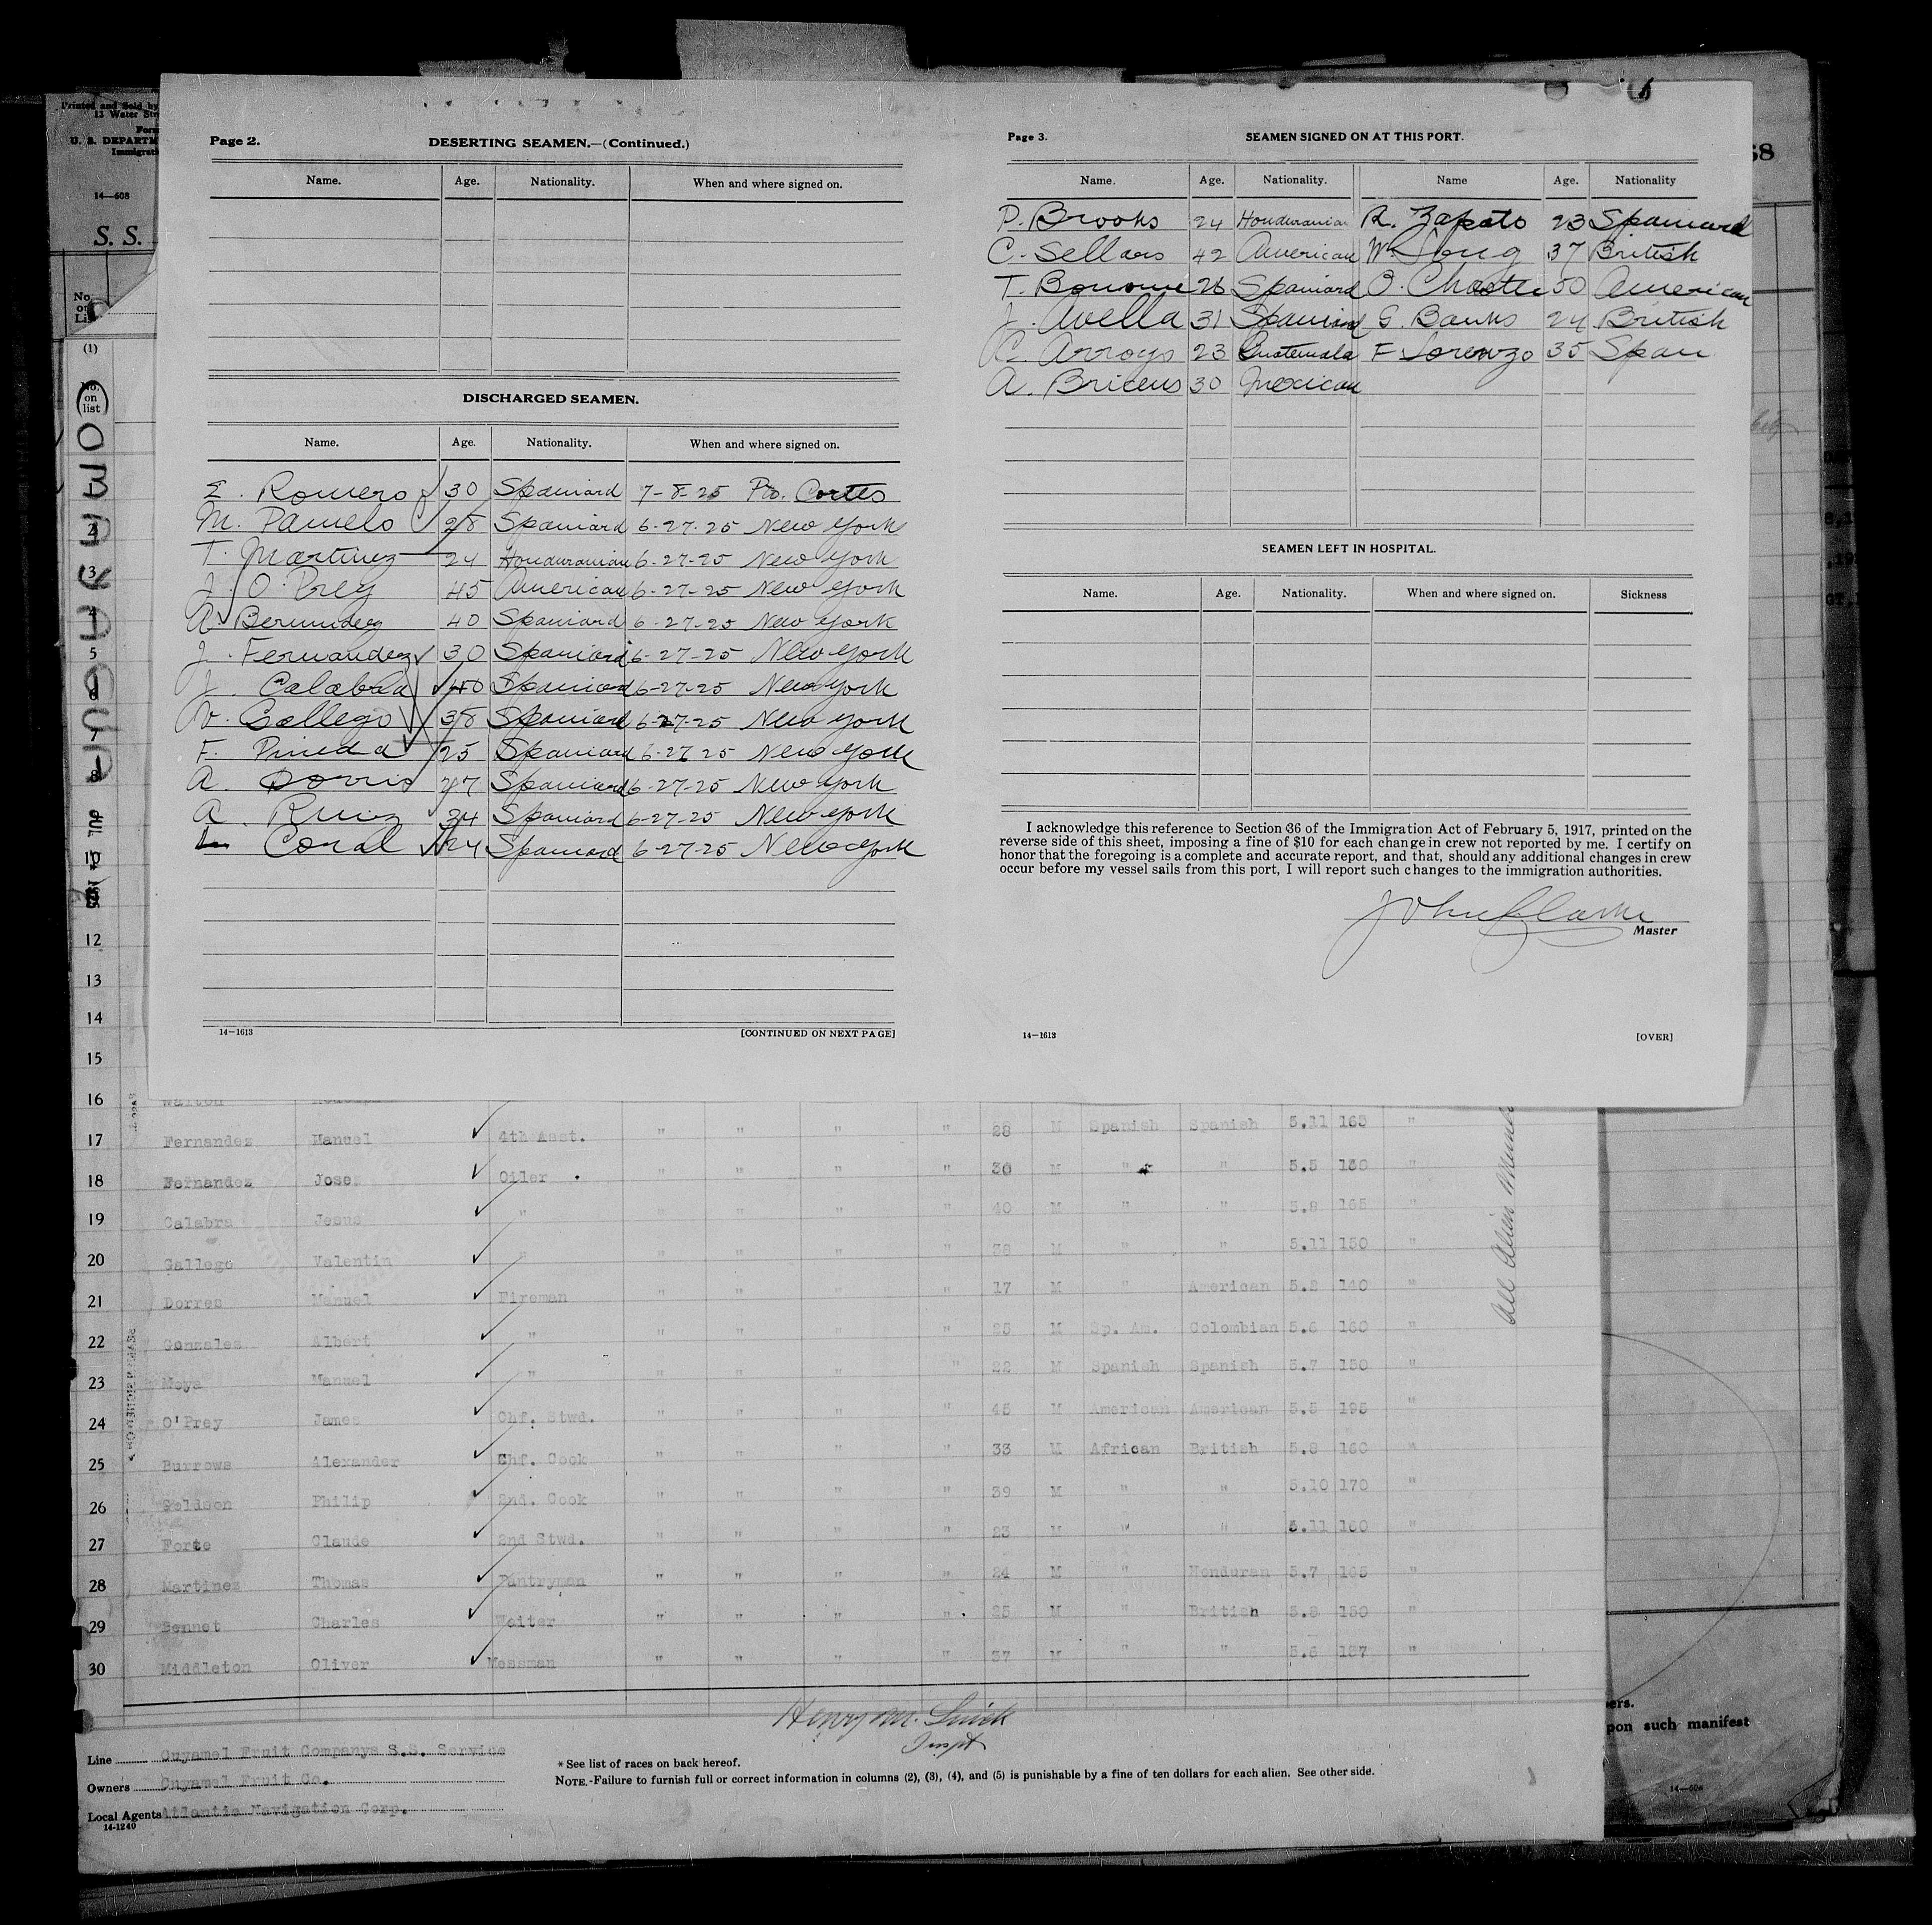 Printed and Sold by
13 Water
Form
U. S. DEPARTM
Immigrat
14—608
S. S.
68
Page 2. DESERTING SEAMEN.—(Continued.)
Name. Age. Nationality. When and where signed on.
DISCHARGED SEAMEN.
Name. Age. Nationality. When and where signed on.
E. Romero 30 Spaniard 7-8-25 Pto. Cortes
M. Pamelo 28 Spaniard 6-27-25 New York
T. Martinez 24 Honduranian 6-27-25 New York
J. O'Prey 45 American 6-27-25 New York
A. Bermudez 40 Spaniard 6-27-25 New York
J. Fernandez 30 Spaniard 6-27-25 New York
J. Calabra 40 Spaniard 6-27-25 New York
V. Gallego 38 Spaniard 6-27-25 New York
F. Pineda 25 Spaniard 6-27-25 New York
A. 27 Spaniard 6-27-25 New York
A. Ruiz 34 Spaniard 6-27-25 New York
Coral 24 Spaniard 6-27-25 New York
14—1613 [CONTINUED ON NEXT PAGE]
Page 3. SEAMEN SIGNED ON AT THIS PORT.
Name. Age. Nationality. Name Age. Nationality
P. Brooks 24 Honduranian R. Zapato 23 Spaniard
C. Sellars 42 American W. Long 37 British
T. 26 Spaniard O. 50 American
J. Avella 31 Spaniard G. Banks 24 British
C. Arroyo 23 Guatemala F Lorenzo 35 Span
A. Briceno 30 Mexican
SEAMEN LEFT IN HOSPITAL.
Name. Age. Nationality. When and where signed on. Sickness
I acknowledge this reference to Section 36 of the Immigration Act of February 5, 1917, printed on the
reverse side of this sheet, imposing a fine of $10 for each change in crew not reported by me. I certify on
honor that the foregoing is a complete and accurate report, and that, should any additional changes in crew
occur before my vessel sails from this port, I will report such changes to the immigration authorities.
John Clarke
Master
14—1613 [OVER]
(1)
No. on list
2
3
4
5
6
7
8
10
12
13
14
15
16 Walton
17 Fernandez Manuel 4th Asst. " " " " 28 M Spanish Spanish 5.11 165 "
18 Fernandez Jose Oiler " " " " 30 M " " 5.5 130 "
19 Calabru Jesus " " " " " 40 M " " 5.8 165 "
20 Gallego Valentin " " " " " 38 M " " 5.11 150 "
21 Dorres Manuel Fireman " " " " 17 M " American 5.8 140 "
22 Gonzales Albert " " " " " 25 M Sp. Am. Colombian 5.6 160 "
23 Moya Manuel " " " " " 22 M Spanish Spanish 5.7 150 "
24 O'Prey James Chf. Stwd. " " " " 45 M American American 5.5 195 "
25 Burrows Alexander Chf. Cook " " " " 33 M African British 5.8 160 "
26 Philip 2nd. Cook " " " " 39 M " " 5.10 170 "
27 Forte Claude 2nd Stwd. " " " " 23 M " " 5.11 160 "
28 Martinez Thomas Pantryman " " " " 24 M " Honduran 5.7 165 "
29 Bennet Charles Waiter " " " " 25 M " British 5.8 150 "
30 Middleton Oliver Messman " " " " 37 M " " 5.6 167 "
All Alien
Henry M.
Inspt
Line Cuyamel Fruit Companys S.S. Service
Owners Cuyamel Fruit Co.
Local Agents Atlantic Navigation Corp.
14-1240
* See list of races on back hereof.
NOTE.-Failure to furnish full or correct information in columns (2), (3), (4), and (5) is punishable by a fine of ten dollars for each alien. See other side.
ers.
pon such manifest
14—608